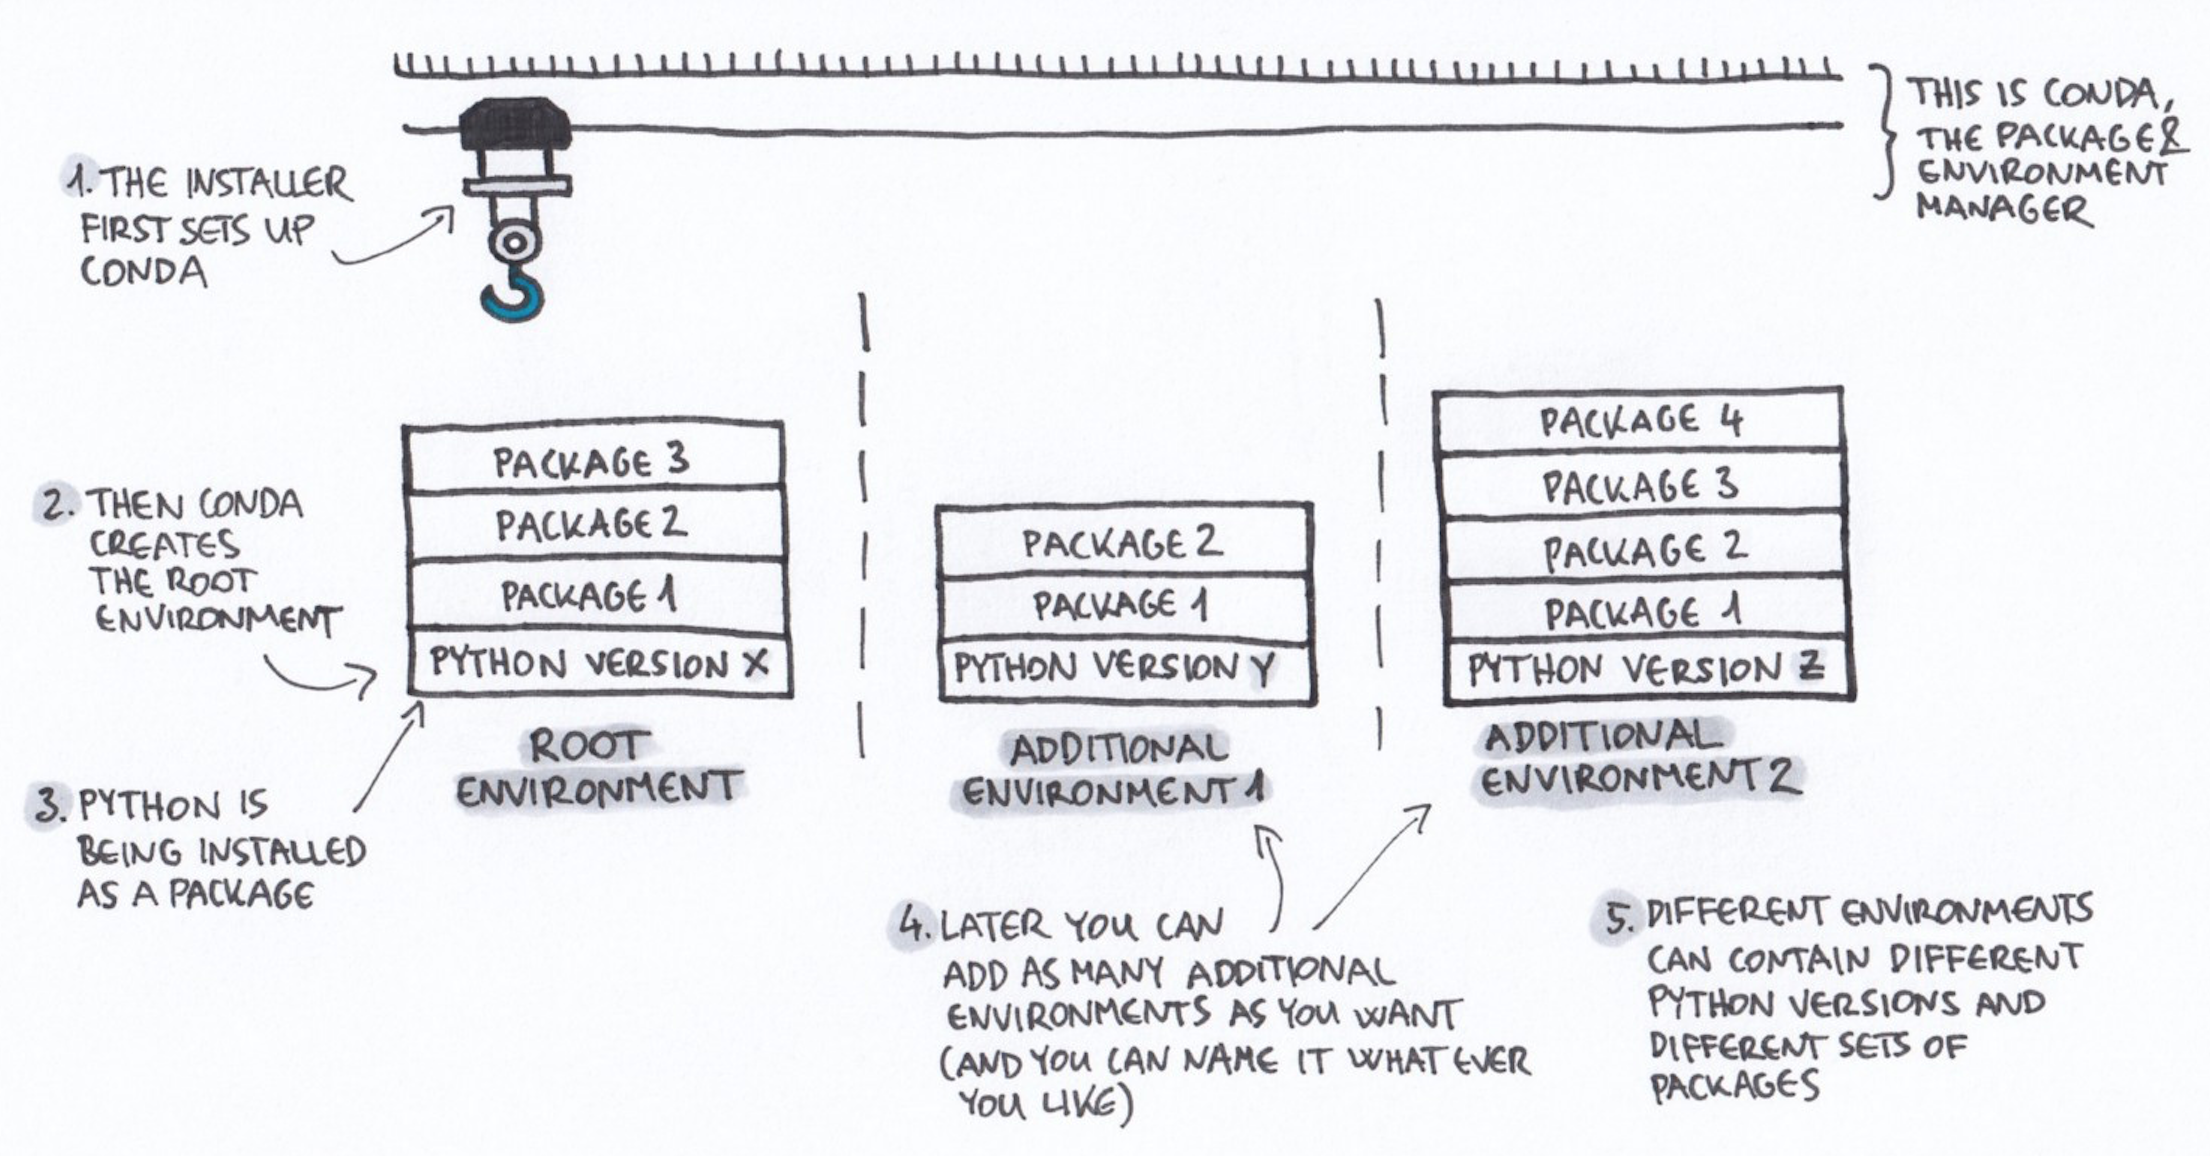 THIS IS CONDA,
THE PACKAGE &
ENVIRONMENT
MANAGER
1. THE INSTALLER
FIRST SETS UP
CONDA
2. THEN CONDA
CREATES
THE ROOT
ENVIRONMENT
3. PYTHON IS
BEING INSTALLED
AS A PACKAGE
PACKAGE 3
PACKAGE 2
PACKAGE 1
PYTHON VERSION X
ROOT
ENVIRONMENT
PACKAGE 2
PACKAGE 1
PYTHON VERSION Y
ADDITIONAL
ENVIRONMENT 1
PACKAGE 4
PACKAGE 3
PACKAGE 2
PACKAGE 1
PYTHON VERSION Z
ADDITIONAL
ENVIRONMENT 2
4. LATER YOU CAN
ADD AS MANY ADDITIONAL
ENVIRONMENTS AS YOU WANT
(AND YOU CAN NAME IT WHATEVER
YOU LIKE)
5. DIFFERENT ENVIRONMENTS
CAN CONTAIN DIFFERENT
PYTHON VERSIONS AND
DIFFERENT SETS OF
PACKAGES